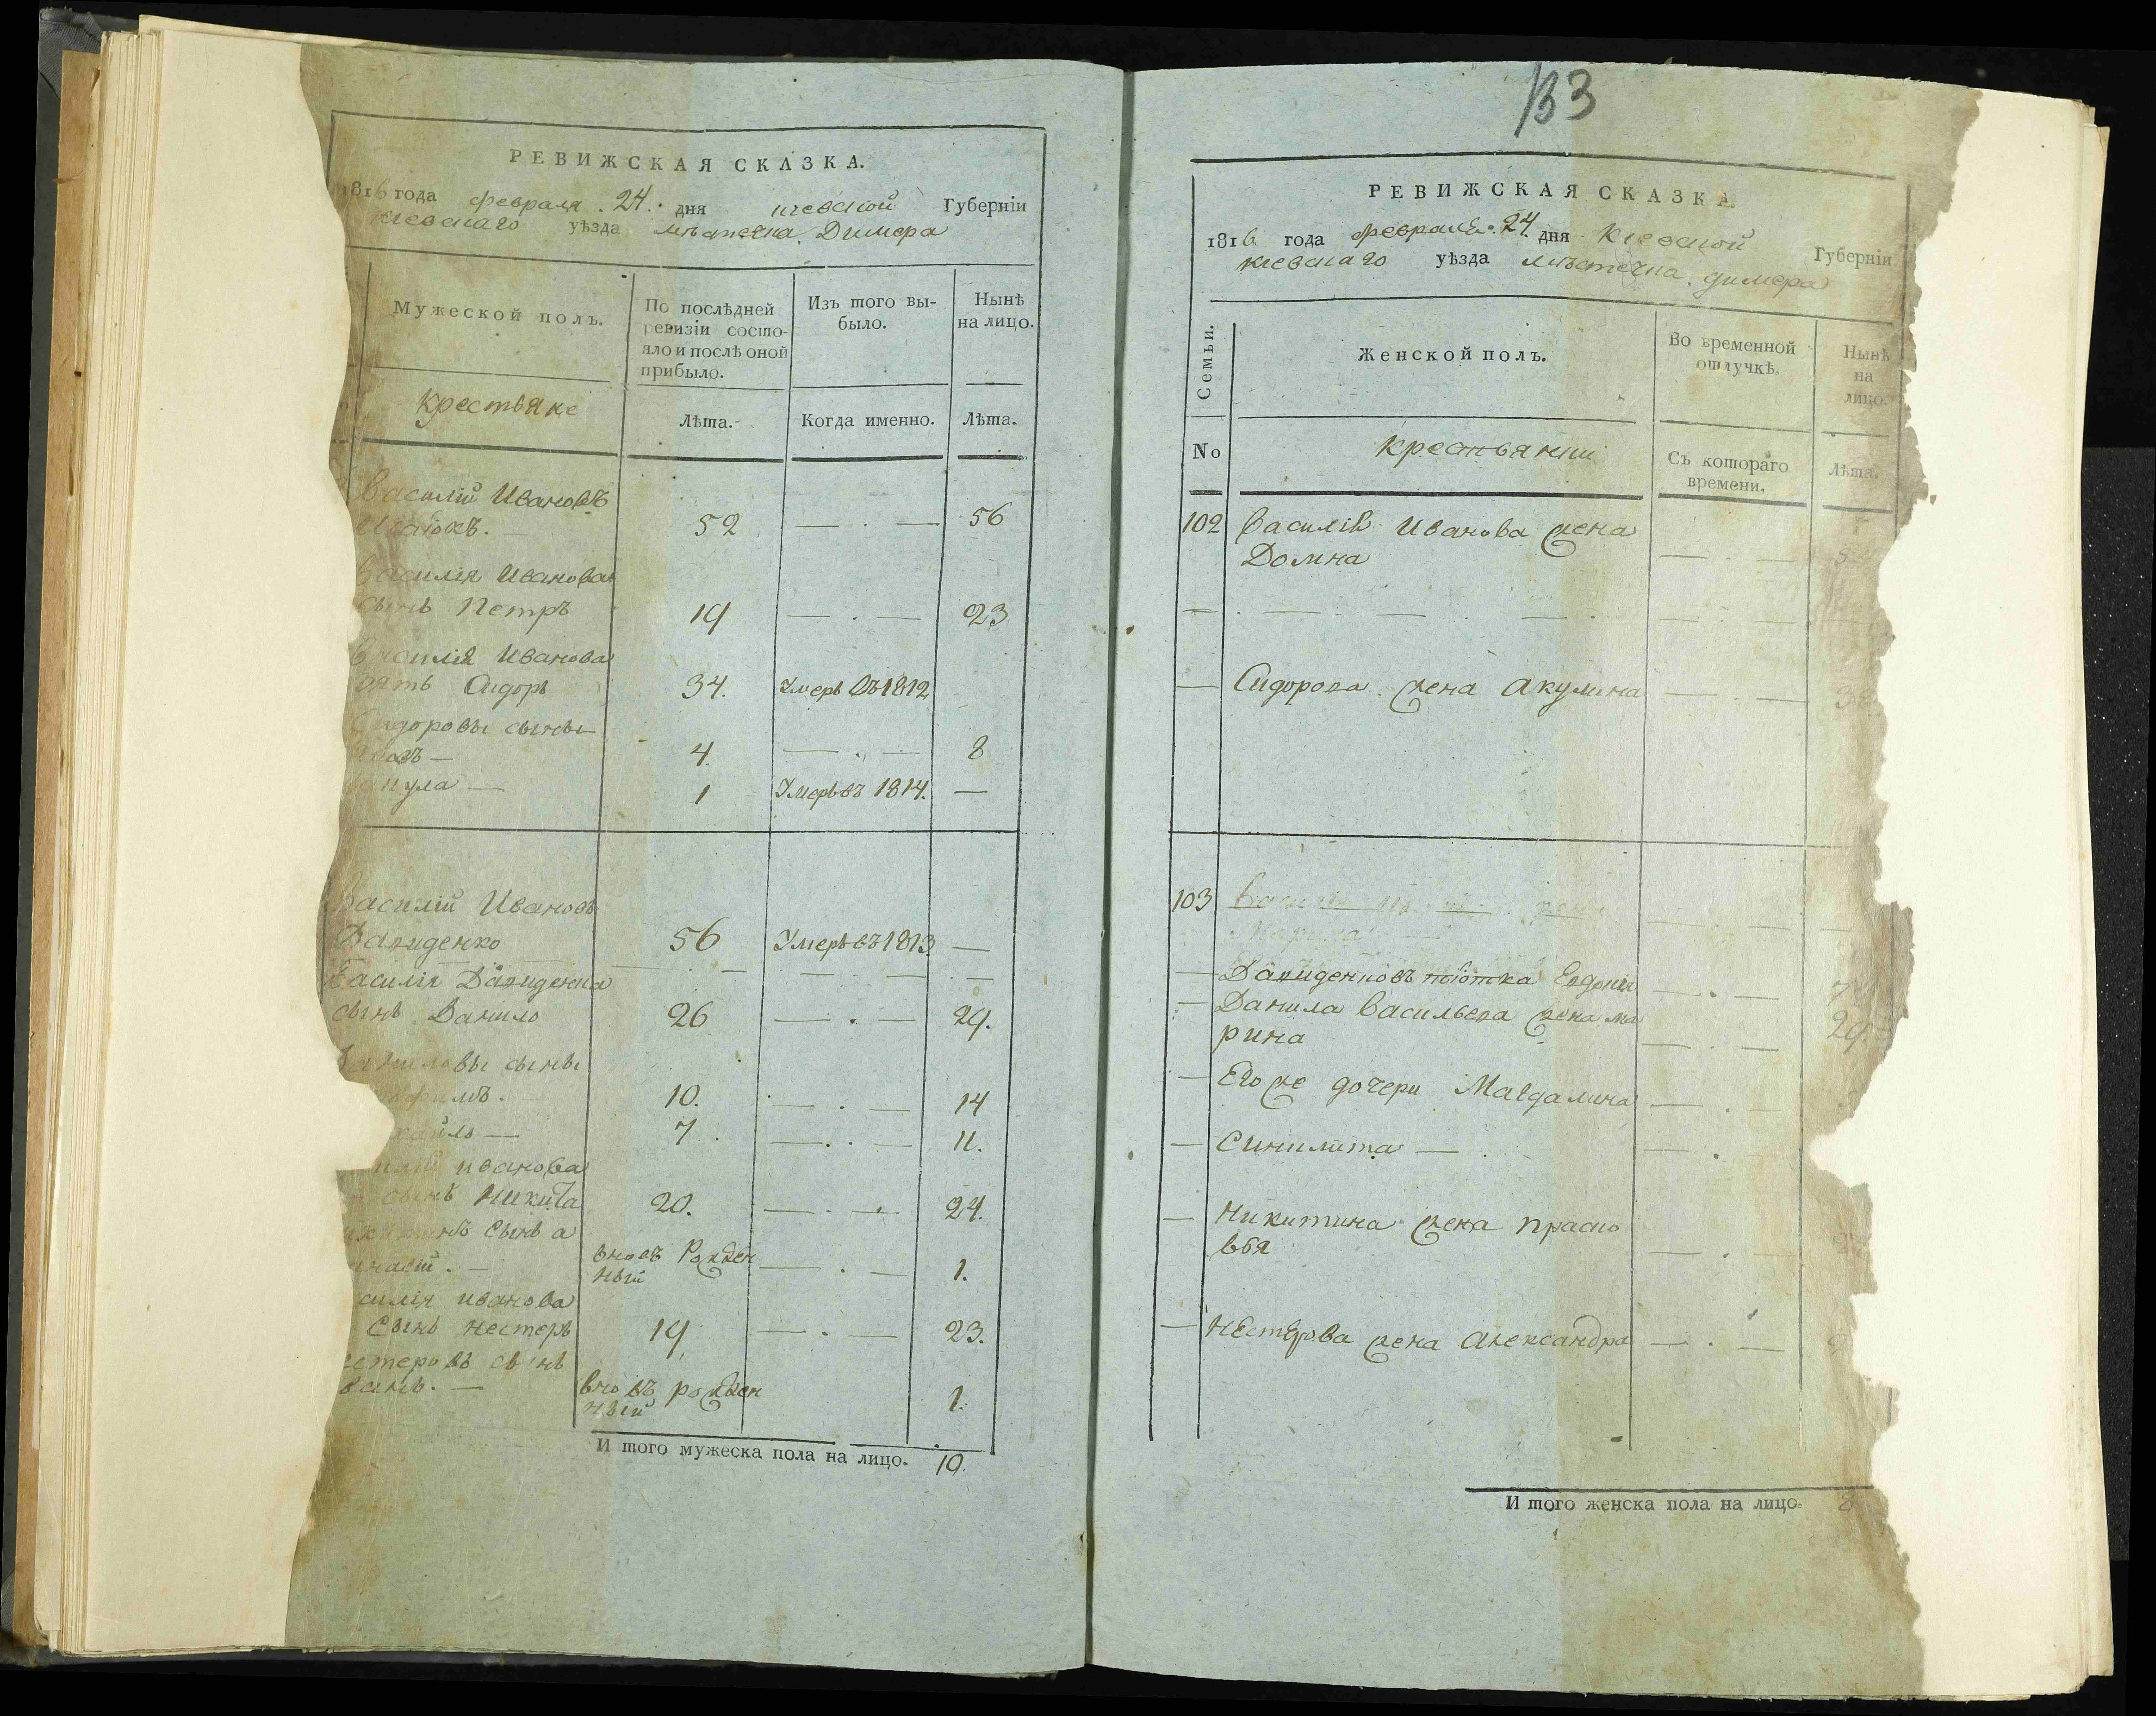 РЕВИЖСКАЯ СКАЗКА.
1816 года февраля 24. дня киевской Губернїи
киевскаго уѣзда мѣстечка Димера
Мужеской полъ.
По послѣдней ревизїи состо-
яло и послѣ оной
прибыло.
Изъ того вы-
было.
Нынѣ
на лицо.
крестьяне
Лѣта.
Когда именно.
Лѣта.
Василій Ивановъ
52 — . — 56
Василія Иванова
сынъ Петръ 19 — . — 23
Василія Иванова
зять Сидоръ 34. Умеръ въ 1812
Сидоровы сыны
4. — . — 8
1 Умеръ въ 1814. —
Василій Ивановъ
Давиденко 56 Умеръ въ 1813 —
Василія Давиденка
сынъ Данило 26 — . — 29.
Даниловы сыны
10. — . — 14
7. — . — 11.
Иванова
сынъ Никита 20. — . — 24.
сынъ а
вновъ Рожден
ный — . — 1.
Иванова
сынъ Нестеръ 19 — . — 23.
сынъ
вновъ рожден
ный 1.
И того мужеска пола на лицо. 10.
133
РЕВИЖСКАЯ СКАЗКА
1816 года февраля 24. дня Киевской Губернїи
киевскаго уѣзда мѣстечка димера
Семьи.
Женской полъ.
Во временной
отлучкѣ.
Нынѣ
на
лицо.
No
крестьянки
Съ котораго
времени.
Лѣта.
102 Василія Иванова жена
Домна — —
— Сидорова жена Акулина — . —
103 Василія жена
— Давиденковъ тіотка Евдокія — . —
— Данила Васильева жена ма
рина — . — 29
— Его же дочери Магдалина — . —
— Синклита — — . —
— Никитина жена праско
вья — . —
— Нестерова жена Александра — . —
И того женска пола на лицо. 8